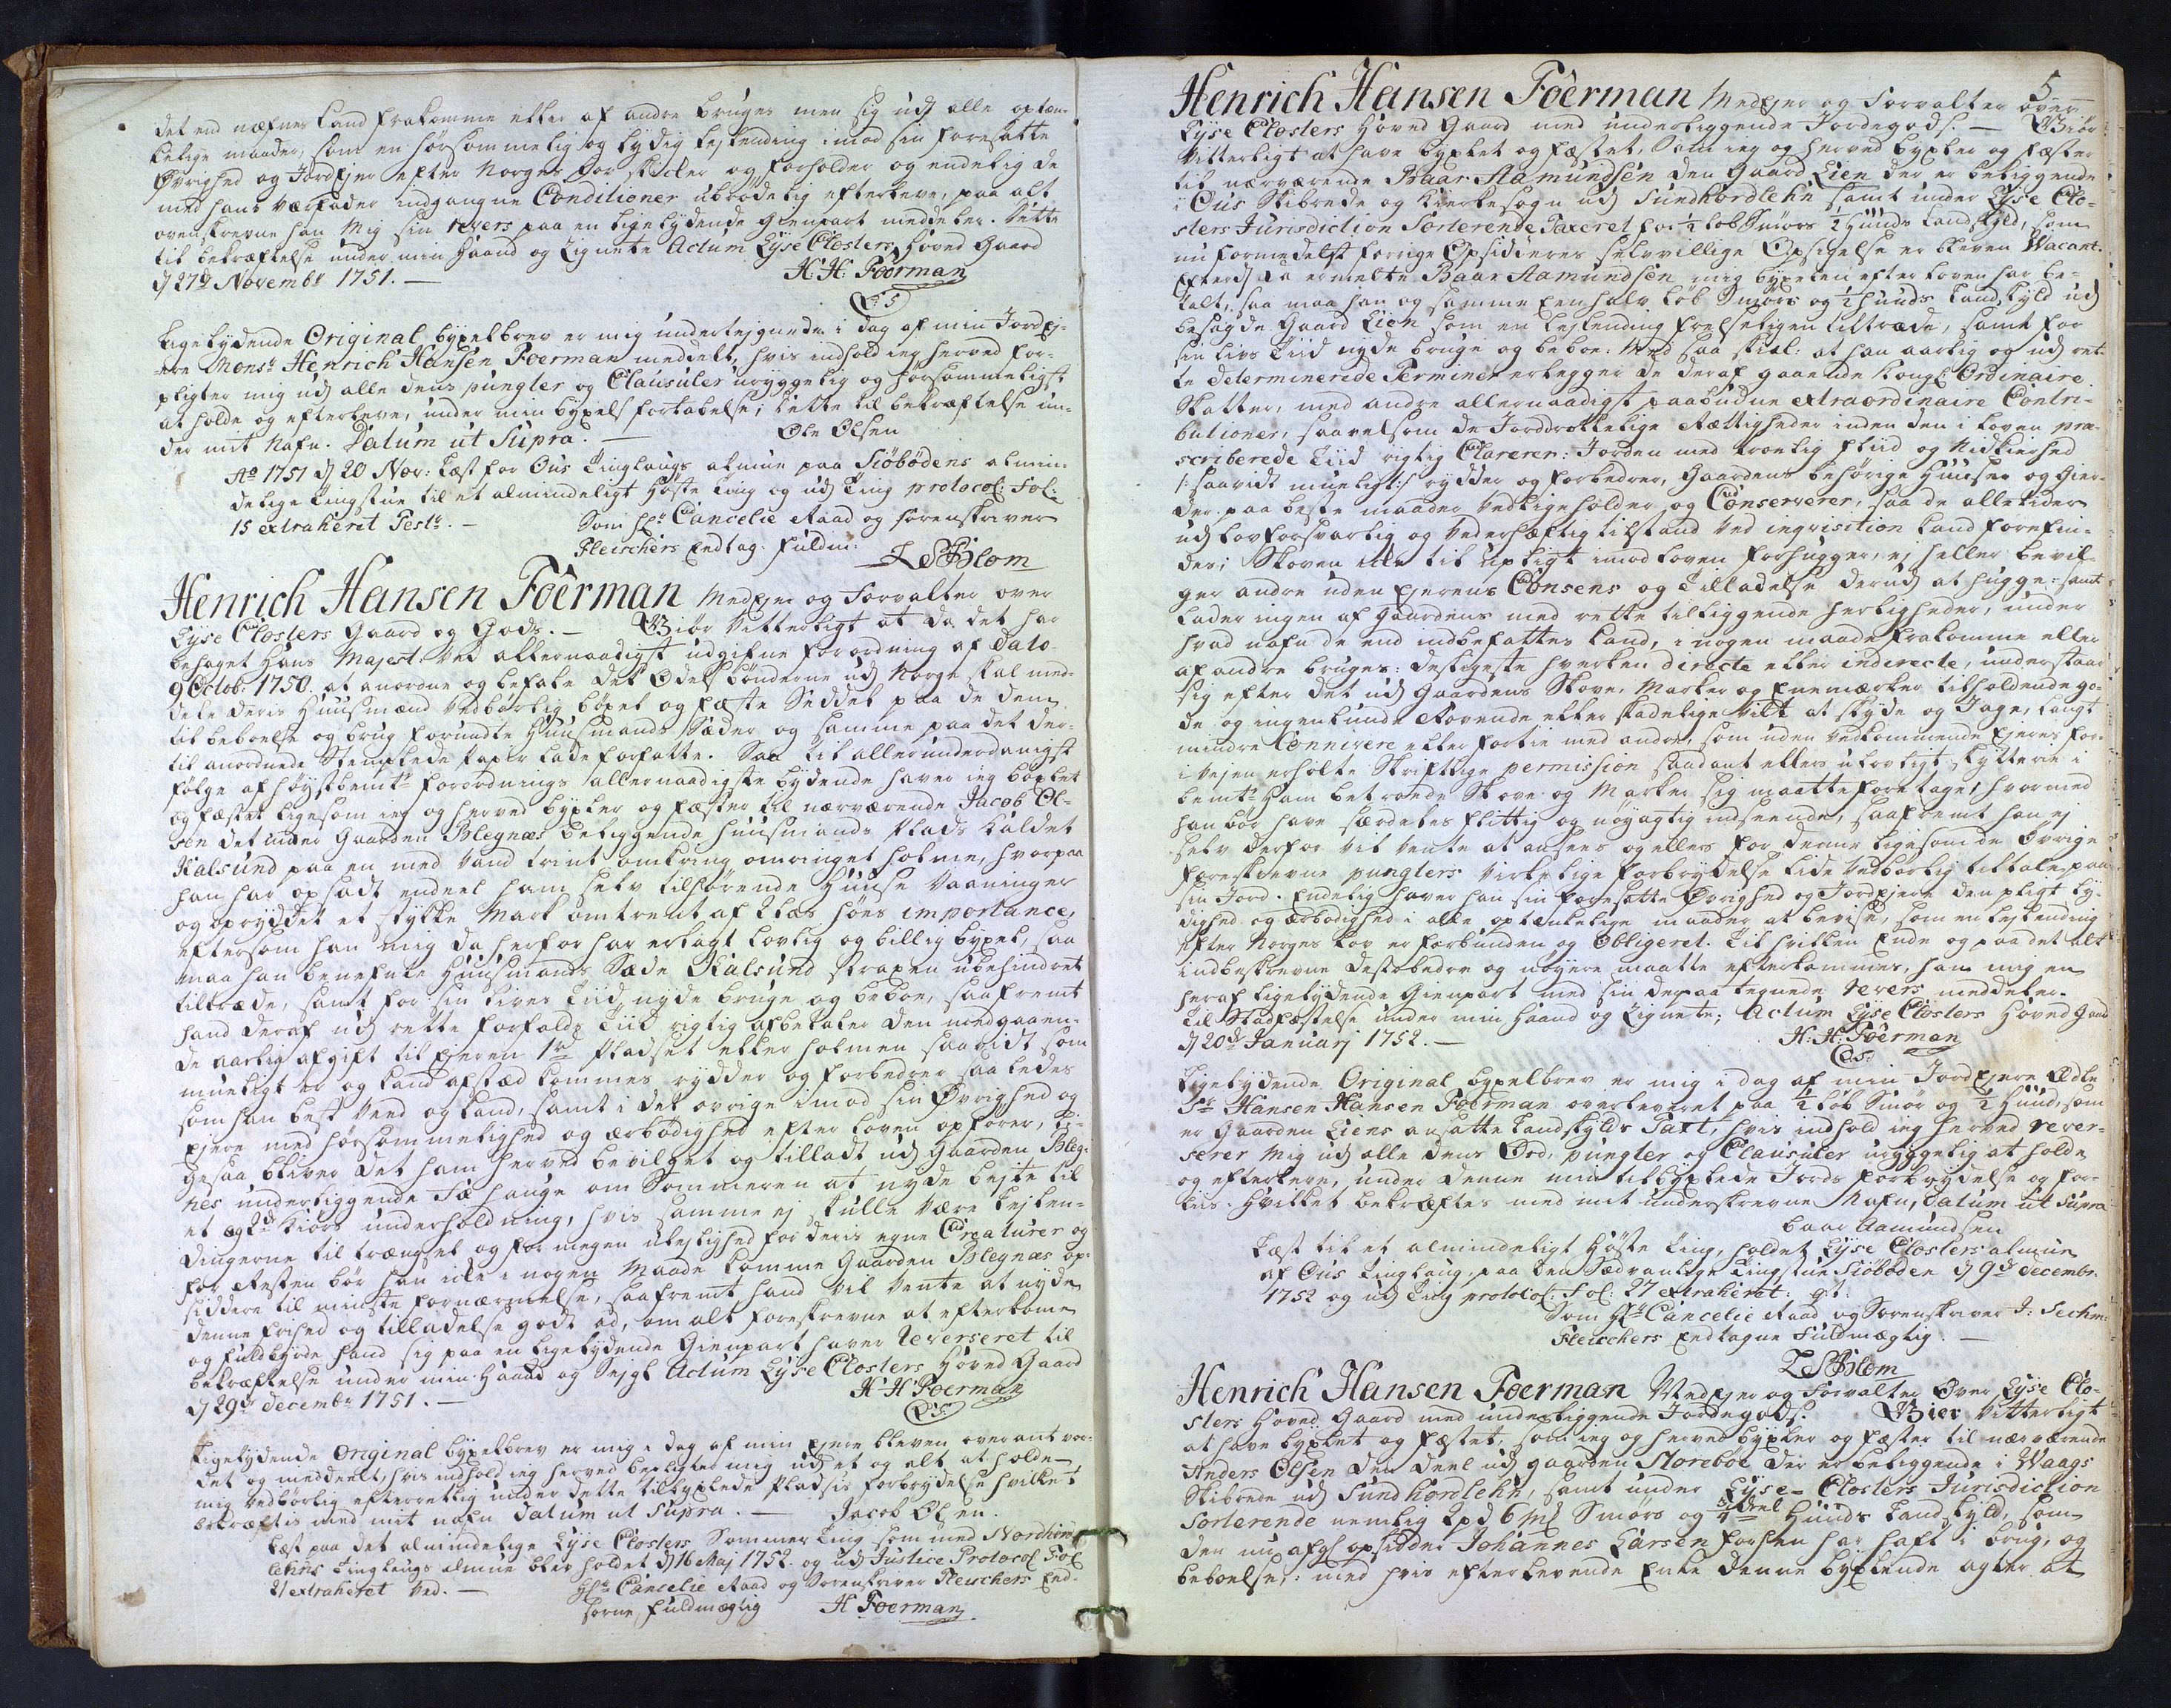 det end næfnes kand frakomme eller af andre bruges men sig udj alle optæn-
kelige maader, som en hørsommelig og lydig lejlending imod sin foresatte
Øvrighed og Jordejer efter Norges Lov skicker og forholder og endelig de
med hans værfader indgangne Conditioner ubrødelig efterleve, paa alt
ovenskrevne han mig sin revers paa en ligelydende gienpart meddeler. Dette
til bekræftelse under min Haand og Zignete Actum Lyse Closters Hoved Gaard
dj 27de Novembr 1751. —
H: H: Foerman
L: S
Ligelydende Original byxelbrev er mig undertejgnede i dag af min Jordej-
ere Monsr Henrich Hansen Foerman meddelt, hvis indhold ieg herved for-
pligter mig udj alle dens puncter og Clausuler uryggelig og hørsommeligst
at holde og efterleve, under min byxels fortabelse, dette til bekræftelse un-
der mit Nafn. Datum ut Supra. —
Ole Olsen
Ao 1751 dj 20 Nov: læst for Ous Tinglaugs almue paa Siøbødens almin-
delige tingstue til et almindeligt Høste ting og udj Ting protocol: Fol:
15 extraheret Test: —
Som Hr Cancelie Raad og Sorenskriver
Fleischers Endtag. Fuldm:
L S Blom
Henrich Hansen Foerman Medejer og Forvalter over
Lyse Closters Gaard og Gods. — Giør Vitterligt at da det har
behaget Hans Majest: ved allernaadigst udgifne forordning af Dato
9 Octob: 1750. at anordne og befale det Odels bønderne udj Norge skal med-
dele deris Huusmænd vedbørlig böxel og fæste Seddel paa de dem
til beboelse og brug forundte Huusmands Sæder og samme paa det der-
til anordnede Stemplede papir lade forfatte. Saa til allerunderdanigst
følge af høystbemte forordnings allernaadigste bydende haver ieg böxlet
og fæstet ligesom ieg og herved byxler og fæster til nærværende Jacob Ol-
sen det under Gaarden Blegnæs beliggende huusmands Plads kaldet
Kalsund paa en med vand trint omkring omringet holme, hvorpaa
han har opsadt endeel ham selv tilhørende Huuse Vaaninger
og opryddet et stykke Mark omtrent af 2 læs høes importance,
eftersom han mig da herfor har erlagt lovlig og billig byxel, saa
maa han benefnte Huusmands Sæde Kalsund straxen ubehindret
tiltræde, samt for sin lives tiid nyde bruge og beboe, saafremt
hand deraf udj rette forfalds Tiid rigtig afbetaler den medgaaen-
de aarlig afgift til Ejeren 1rd Pladset eller holmen saavidt som
mueligt er og kand afsted kommes rydder og forbedrer saaledes
som han best veed og kand, samt i det øvrige imod sin Øvrighed og
Ejere med hørsommelighed og ærbødighed efter Loven opfører, li-
gesaa bliver det ham herved bevilget og tilladt udj Gaarden Bleg-
nes underliggende Fæ hauge om Sommeren at nyde bejte til
et  Kiörs underholdning, hvis samme ej skulle være lejlen-
dingerne til trængsel og for megen ulejlighed for deris egne Creaturer og
for Resten bør han icke i nogen Maade komme Gaarden Blegnæs op-
siddere til minste fornærmelse, saafremt hand vil vente at nyde
denne frihed og tilladelse godt ad, om alt forestrevne at efterkomme
og fuldbyrde hand sig paa en ligelydende Gienpart haver Reverseret til
bekræftelse under min Haand og Sejgl Actum Lyse Closters Hoved Gaard
dj 29de decembr 1751. —
H H Foerman
L: S:
Ligelydende Original byxelbrev er mig i dag af min Ejere bleven overantvor-
det og meddeelt, hvis indhold ieg herved beplegter mig udj et og alt at holde
mig vedbörlig efterrettlig under dette tilbyxlede Pladsis forbrydelse hvilket
bekræftis med mit nafn datum ut supra. —
Jacob Olsen.
Læst paa det almindelige Lyse Closters Sommer Ting som med Nordhord-
lehns Tinglaugs almue blev holdet dj 16 Maj 1752. og udj Justice Protocol Fol
21 extraheret ved. —
Hr Cancelie Raad og Sorenskriver Fleischers End-
 fuldmægtig
H Foerman
5
Henrich Hansen Foerman Medejer og Forvalter over
Lyse Closters Hoved Gaard med underliggende Jordegods. — Giør
Vitterligt at have byxlet og fæstet, Som ieg og herved byxler og fæster
til nærværende Baar Aamundsen den Gaard Lien der er beliggende
i Ous Skibrede og Kierkesogn udj Sundhordlehn samt under Lyse Clo-
sters Jurisdiction Sorterende Taxeret for ½ Løb Smørs ½ Huuds Landskyld, som
nu formedelst forrige Opsidderes selvvillige Opsigelse er bleven Vacant.
Efterdj da ermelte Baar Aamundsen mig byxelen efter loven har be-
talt, saa maa han og samme Een halv løb Smørs og ½ huuds Landskyld udj
besagde Gaard Lien som en lejlending frelseligen tiltræde, samt for
sin livs Tiid nyde bruge og beboe: Med saa skiel: at han aarlig og udj ret-
te determinerede Terminer erlegger de deraf gaaende Kongl: Ordinaire
Skatter, med andre allernaadigst paabudne extraordinaire Contri-
butioner, saavelsom de Jorddrottelige Rættigheder inden den i Loven præ-
scriberede Tiid rigtig Clarerer: Jorden med troelig fliid og Nidkierhed
/: saavidt mueligt :/ rydder og forbedrer, Gaardens behørige Huuser og Gier-
der paa beste maader vedligeholder og Conserverer, saa de alletider
udj lovforsvarlig og vederhæftig tilstand ved inqvisition kand forefin-
des; Skoven icke til upligt imod loven forhugger, ej heller bevil-
ger andre uden Ejerens Consens og Tilladelse derudj at hugge: samt
lader ingen af Gaardens med rette tilliggende herligheder, under
hvad nafn de end indbefattes kand, i nogen maade frakomme eller
af andre bruges: desligeste hverken directe eller indirecte, understaar
sig efter det udj Gaardens Skove, Marker og Enemærker tilholdende go-
de og ingenlunde Rovende eller skadelige Vilt at skyde og Jage, langt
mindre Connivere eller fortie med andre, som uden vedkommende Ejeres for-
i vejen erholte Skriftlige permission saadant ellers ulovligt skytterie i
bemte ham betroede Skove og Marker sig maatte foretage, hvormed
han bör have særdeles flittig og nöyagtig indseende, saafremt han ej
selv derfor vil vente at ansees og ellers for denne ligesom de Øvrige
foreskrevne puncters virkelige forbrydelse lide vedbørlig tiltale paa
sin Jord. Endelig haver han sin foresatte Øvrighed og Jordejere den pligt ly-
dighed og ærbödighed i alle optænkelige maader at bevise, som en lejlending
efter Norges Lov er forbunden og Obligeret. Til hvilken Ende og paa det alt
indbeskrevne destobedre og nöyere maatte efterkommes, han mig en
heraf ligelydende Gienpart med sin derpaa tegnede revers meddeler.
Til Stadfæstelse under min Haand og Zignete; Actum Lyse Closters Hoved Gaard
dj 20de Januarj 1752. —
H: H: Foerman
L: S:
Ligelydende Original byxelbrev er mig i dag af min Jordejere Ædle
Sr Hansen Hansen Foerman overleveret paa ½ Løb Smør og ½ Huud, som
er Gaarden Liens ansatte Landskylds Taxt, hvis indhold ieg herved rever-
serer mig udj alle dens Ord, puncter og Clausuler uryggelig at holde
og efterleve, under denne min tilbyxlede Jords forbrydelse og for-
liis. Hvilket bekræftes med mit underskrevne Nafn, datum ut Supra
Baar Aamundsen
Læst til et almindeligt Høste Ting, holdet Lyse Closters almue
af Ous Tinglaug, paa den sædvanlige Tingstue Siöboden dj 9de decembr.
1752 og udj Ting protocol: Fol: 27 extraheret: qt:
Som Hr Cancelie Raad og Sorenskriver J. Sechm:
Fleischers Endtagne Fuldmægtig. —
L S Blom
Henrich Hansen Foerman Medejer og Forvalter Over Lyse Clo-
sters Hoved Gaard med underliggende Jordegods. Giør Vitterligt
at have byxlet og fæstet, som ieg og herved byxler og fæster til nærværende
Anders Olsen den deel udj gaarden Storeboe der er beliggende i Waags
Skibrede udj Sundhordlehn, samt under Lyse- Closters Jurisdiction
Sorterende nemlig 2pd 6 mk Smørs og ¾ deel Huuds Landskyld, som
den nu afgl opsidder Johannes Larsen forhen har haft i brug, og
beboelse, : med hvis efterlevende Enke denne byxlende agter at